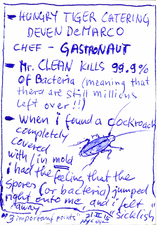 - HUNGRY TIGER CATERING
DEVEN DEMARCO
CHEF - GASTRONAUT
- Mr. CLEAN KILLS 99.9%
of Bacteria (meaning that
there are still millions
left over!!)
- when i found a cockroach
completely
covered
with/in mold
i had the feeling that the
spores (or bacteria) jumped
right onto me and i felt
sicklish
"3 important points"